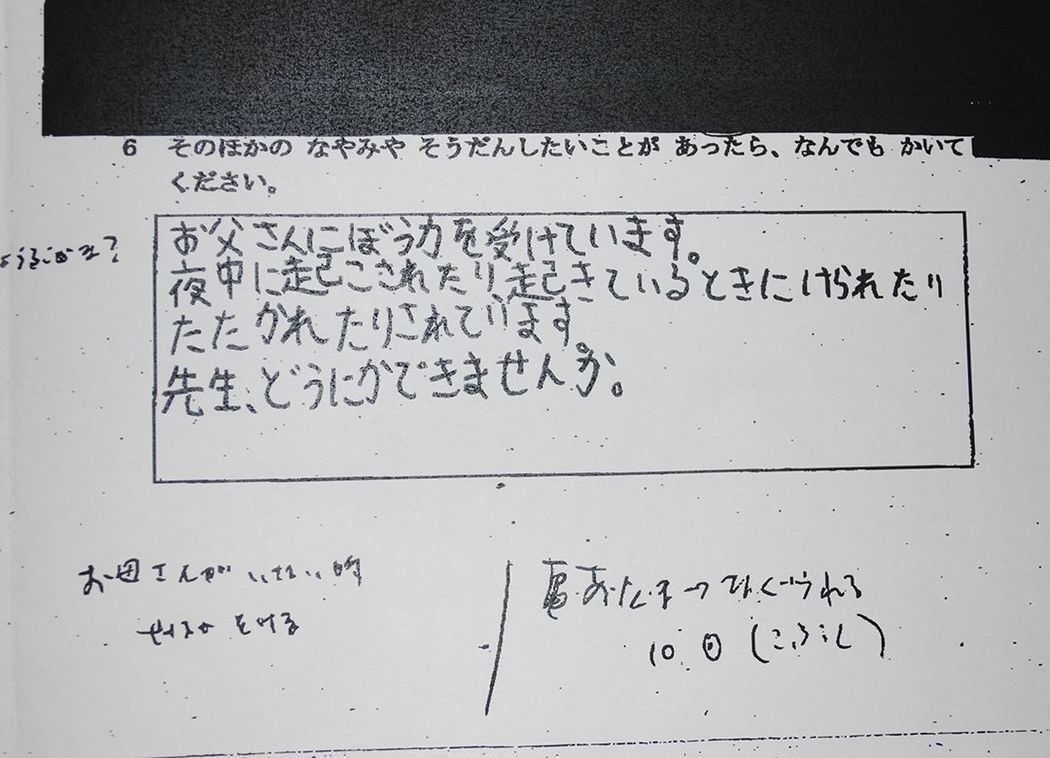 6 そのほかの なやみや そうだんしたいことが あったら、なんでも かいて
ください。
お父さんにぼう力を受けています。
夜中に起こされたり起きているときにけられたり
たたかれたりされています。
先生、どうにかできませんか。
お母さんがいない時
あたま
なぐられる
10回(こぶし)